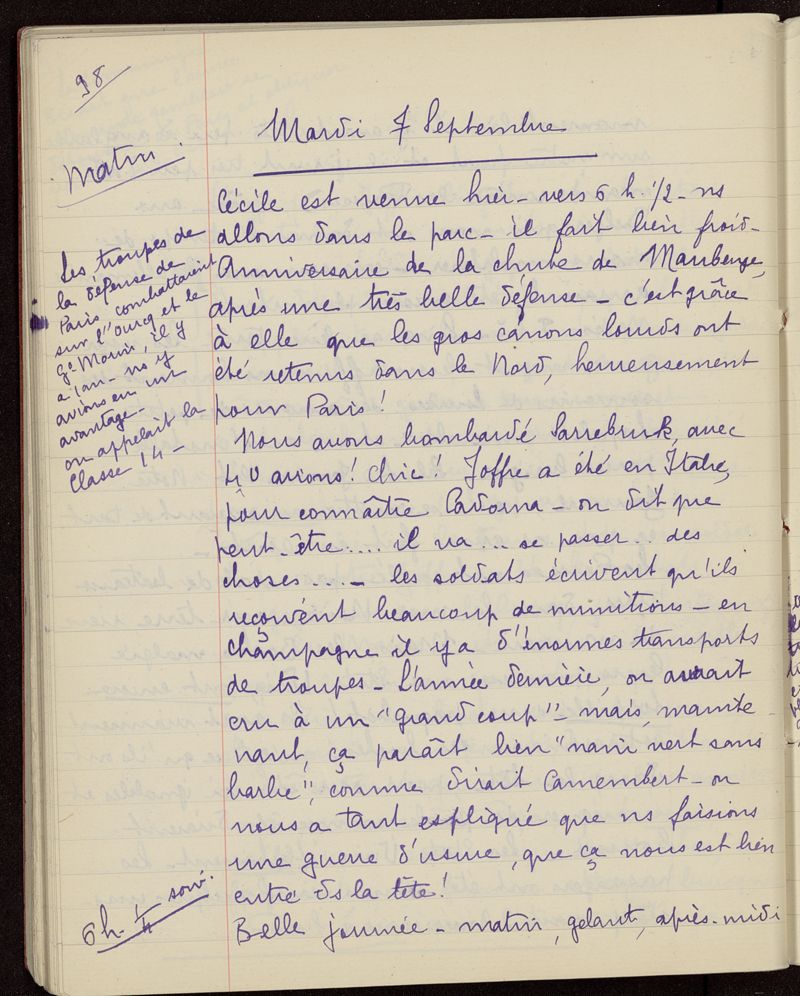 98
Mardi 7 Septembre
Matin.
Cécile est venue hier - vers 6 h. 1/2 - ns
allons dans le parc - il fait bien froid -
Anniversaire de la chute de Maubeuge,
après une très belle défense - c'est grâce
à elle que les gros canons lourds ont
été retenus dans le Nord, heureusement
pour Paris !
Les troupes de
la défense de
Paris combattaient
sur l'Ourcq et le
Gd Morin, il y
a 1 an - ns y
avions eu un
avantage -
on appelait la
Classe 14 -
Nous avons bombardé Sarrebruk, avec
40 avions ! Chic ! Joffre a été en Italie,
pour connaître Cadorna - on dit que
peut-être .... il va ... se passer .. des
choses .... - les soldats écrivent qu'ils
reçoivent beaucoup de munitions - en
champagne il y a d'énormes transports
de troupes - L'année dernière, on aurait
cru à un "grand coup" - mais, mainte
nant, ça paraît bien "navir vert sans
barbe", comme dirait Camembert - on
nous a tant expliqué que ns faisions
une guerre d'usure, que ça nous est bien
entré ds la tête !
6 h. 1/4 soir.
Belle journée - matin, gelant, après-midi